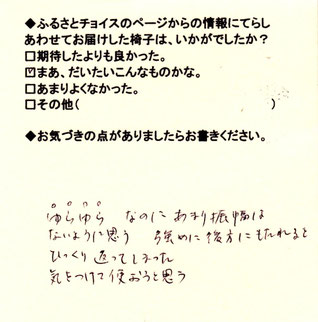 ◆ふるさとチョイスのページからの情報にてらし
あわせてお届けした椅子は、いかがでしたか？
□期待したよりも良かった。
☑まあ、だいたいこんなものかな。
□あまりよくなかった。
□その他(　　　　　　　　　　　　　　　)
◆お気づきの点がありましたらお書きください。
ゆらゆら なのに あまり振幅は
ないように思う 強めに後方にもたれると
ひっくり返ってしまった
気をつけて使おうと思う